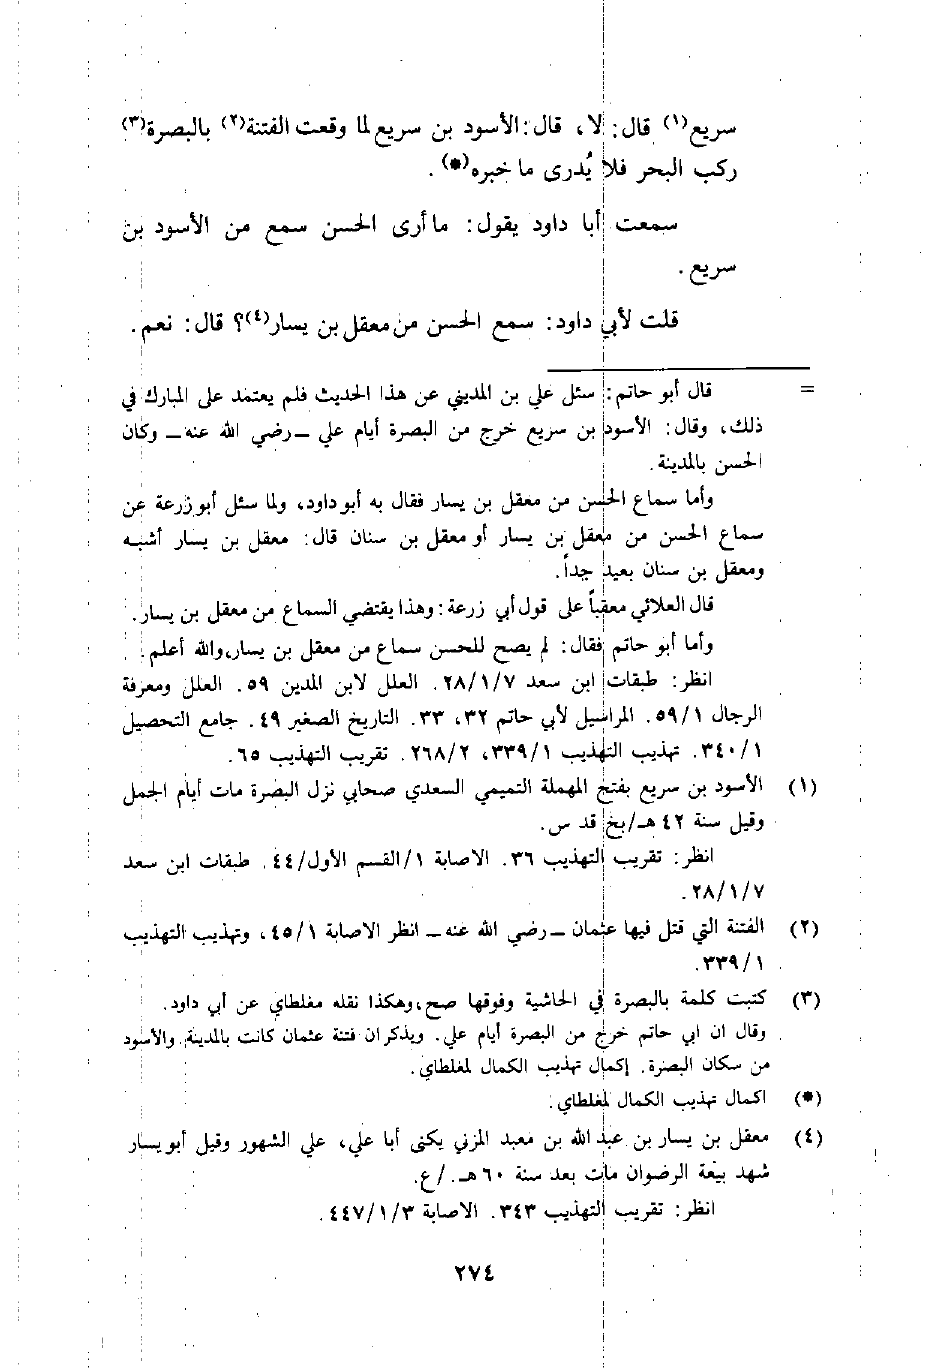 سريع(١) قال: لا، قال: الأسود بن سريع لما وقعت الفتنة(٢) بالبصرة(٣)
ركب البحر فلا يُدرى ما خبره(*).
سمعت أبا داود يقول: ما أرى الحسن سمع من الأسود بن
سريع.
قلت لأبي داود: سمع الحسن من معقل بن يسار(٤)؟ قال: نعم.
= قال أبو حاتم: سئل علي بن المديني عن هذا الحديث فلم يعتمد على المبارك في
ذلك، وقال: الأسود بن سريع خرج من البصرة أيام علي ــ رضي الله عنه ــ وكان
الحسن بالمدينة.
وأما سماع الحسن من معقل بن يسار فقال به أبو داود، ولما سئل أبو زرعة عن
سماع الحسن من معقل بن يسار أو معقل بن سنان قال: معقل بن يسار أشبه
ومعقل بن سنان بعيد جداً.
قال العلائي معقباً على قول أبي زرعة: وهذا يقتضي السماع من معقل بن يسار.
وأما أبو حاتم فقال: لم يصح للحسن سماع من معقل بن يسار، والله أعلم.
انظر: طبقات ابن سعد ٢٨/١/٧. العلل لابن المدين ٥٩. العلل ومعرفة
الرجال ٥٩/١. المراسيل لأبي حاتم ٣٢، ٣٣. التاريخ الصغير ٤٩. جامع التحصيل
٣٤٠/١. تهذيب التهذيب ٣٣٩/١، ٢٦٨/٢. تقريب التهذيب ٦٥.
(١) الأسود بن سريع بفتح المهملة التميمي السعدي صحابي نزل البصرة مات أيام الجمل
وقيل سنة ٤٢ هـ/بخ قد س.
انظر: تقريب التهذيب ٣٦. الاصابة ١/القسم الأول/٤٤. طبقات ابن سعد
٢٨/١/٧.
(٢) الفتنة التي قتل فيها عثمان ــ رضي الله عنه ــ انظر الاصابة ٤٥/١، وتهذيب التهذيب
٣٣٩/١.
(٣) كتبت كلمة بالبصرة في الحاشية وفوقها صح، وهكذا نقله مغلطاي عن أبي داود.
وقال ان ابي حاتم خرج من البصرة أيام علي. ويذكر ان فتنة عثمان كانت بالمدينة. والأسود
من سكان البصرة. إكمال تهذيب الكمال لمغلطاي.
(*) اكمال تهذيب الكمال لمغلطاي.
(٤) معقل بن يسار بن عبد الله بن معبد المزني يكنى أبا علي، علي الشهور وقيل أبو يسار
شهد بيعة الرضوان مات بعد سنة ٦٠ هـ. /ع.
انظر: تقريب التهذيب ٣٤٣. الاصابة ٤٤٧/١/٣.
٢٧٤